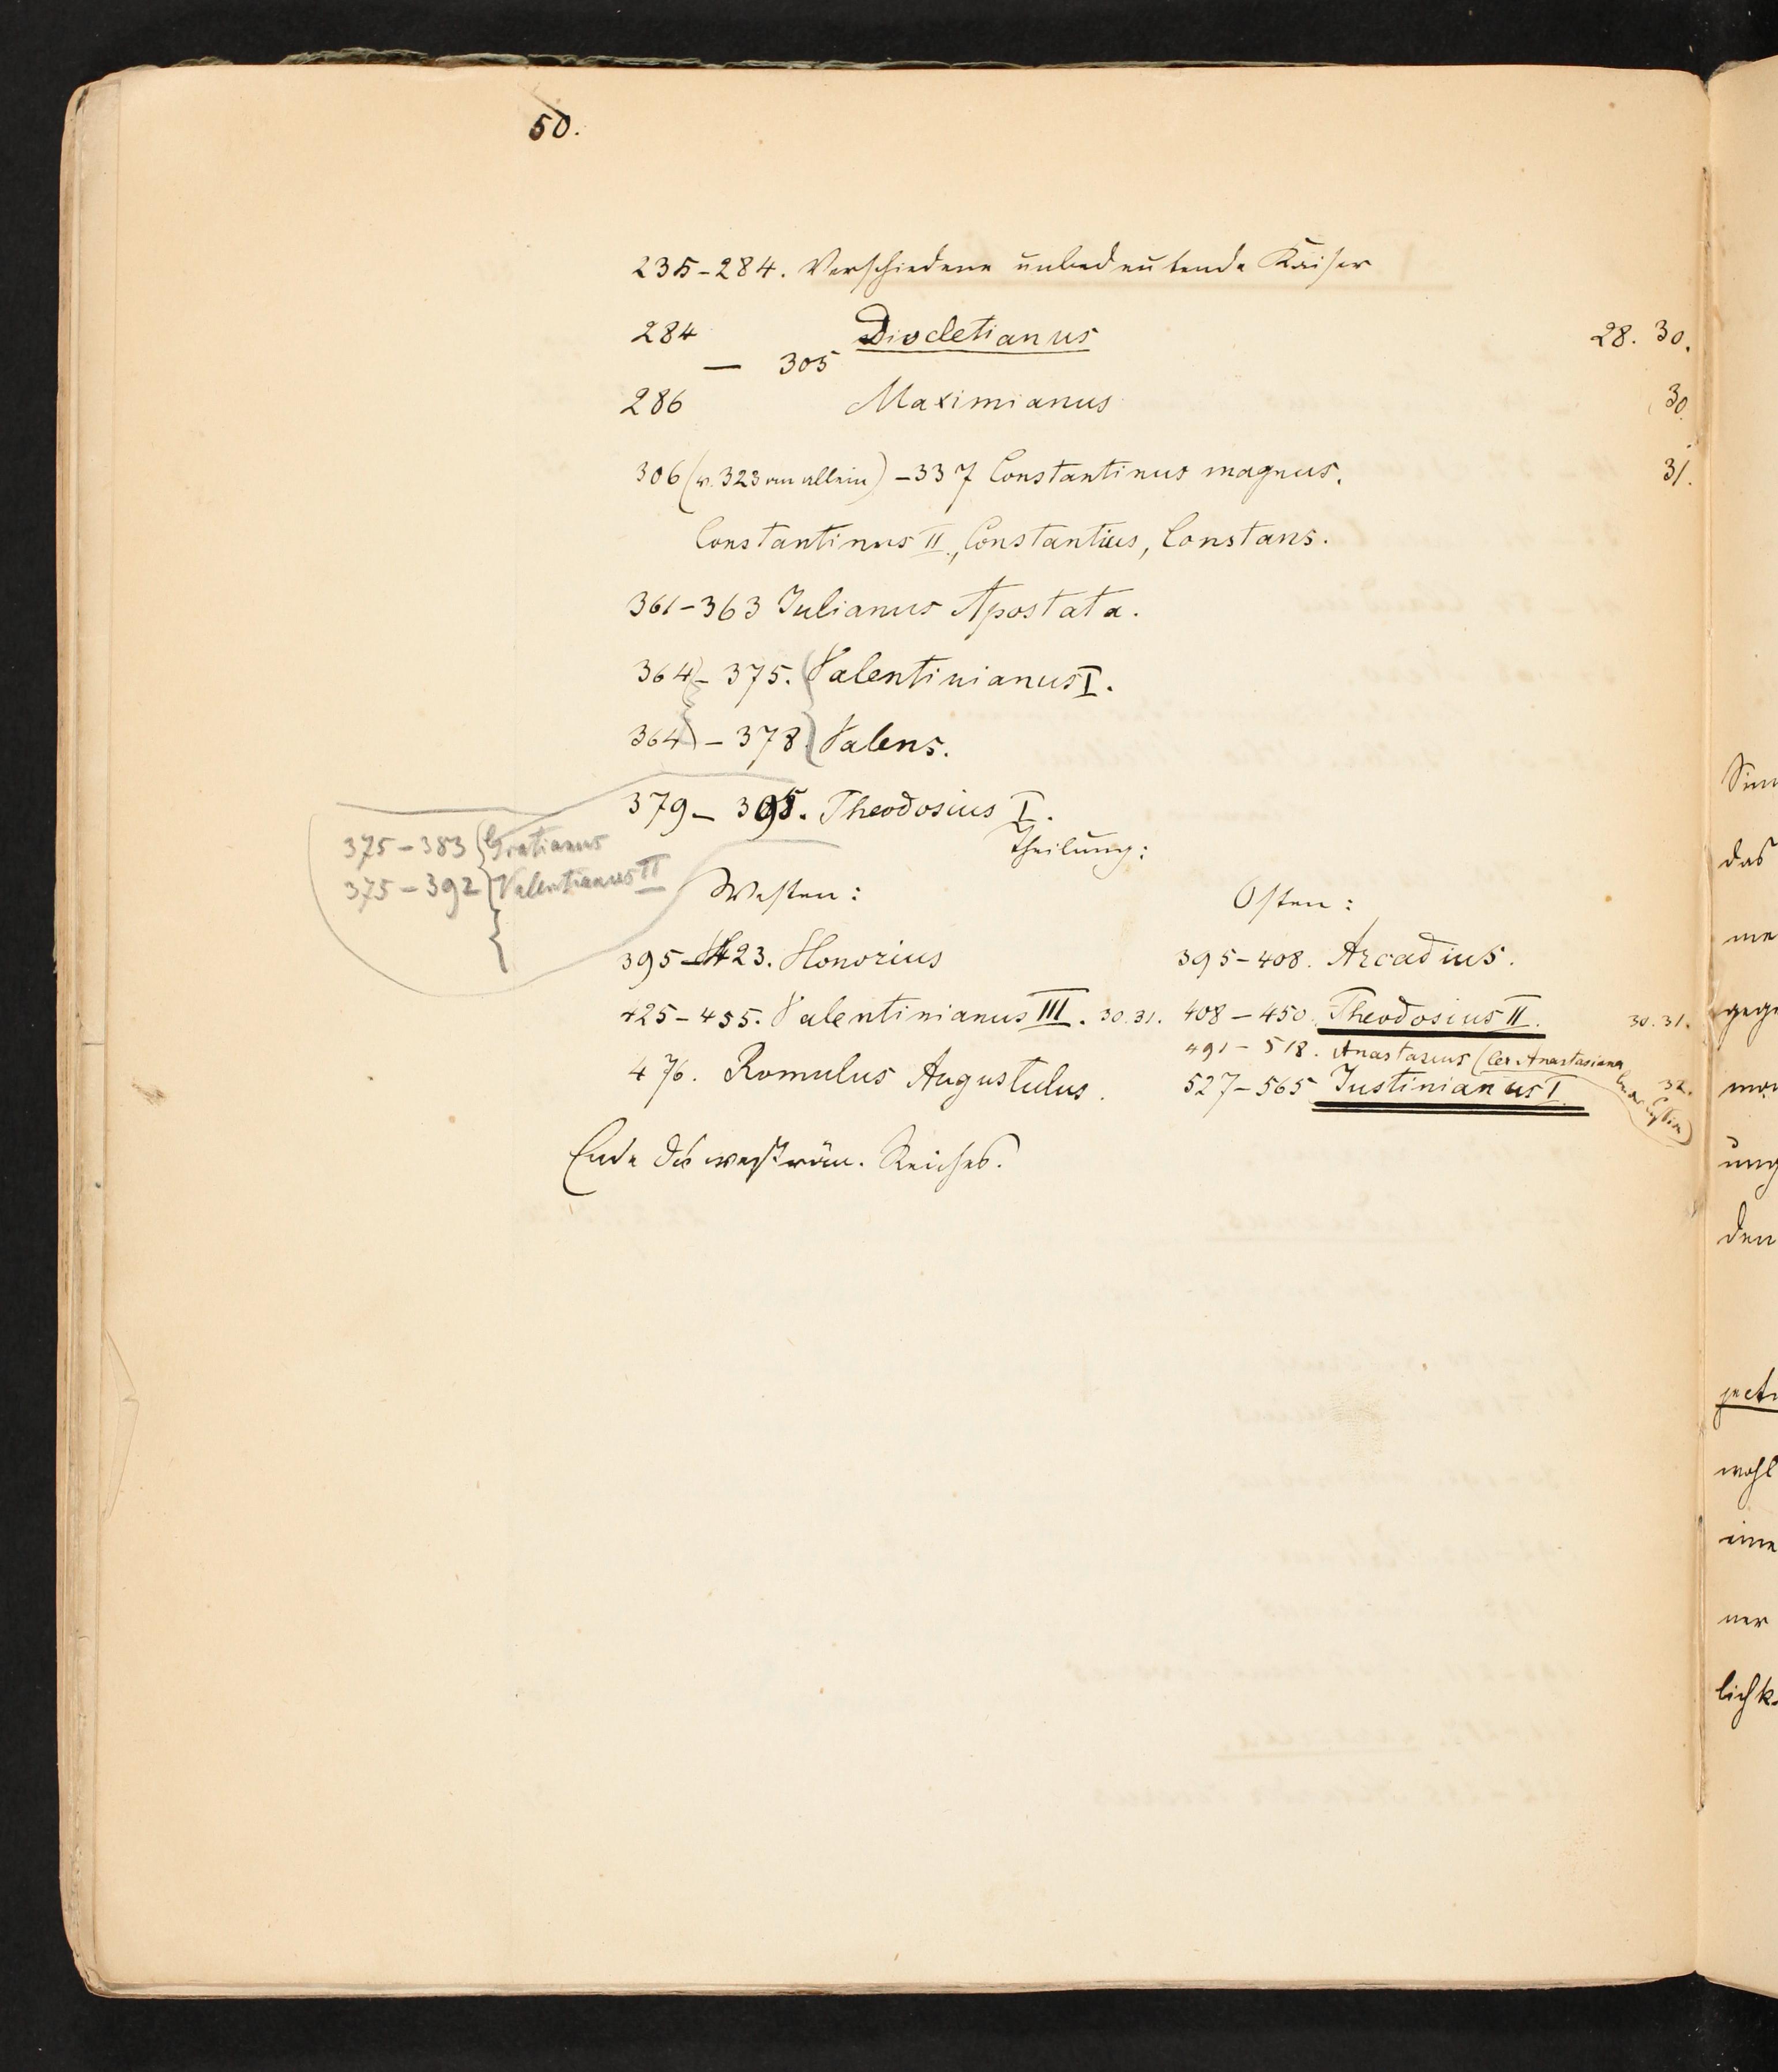 50.
235-284. Verschiedene unbedeutende Kaiser
284 Diocletianus 28. 30.
— 305
286 Maximianus 30.
306 (v. 323 an allein) - 337 Constantinus magnus. 31.
Constantinus II., Constantius, Constans.
361-363 Iulianus Apostata.
364 - 375. Valentinianus I.
364 - 378 Valens.
379 - 395. Theodosius I.
Theilung:
375 - 383 Gratianus
375 - 392 Valentianus II
Westen: Osten:
395-423. Honorius 395-408. Arcadius.
425-455. Valentinianus III. 30.31. 408-450. Theodosius II. 30.31.
491-518. Anastasius (lex Anastasiana
476. Romulus Augustulus. 527-565 Iustinianus I. 32.
Ende des weström. Reiches.
das
den
wohl